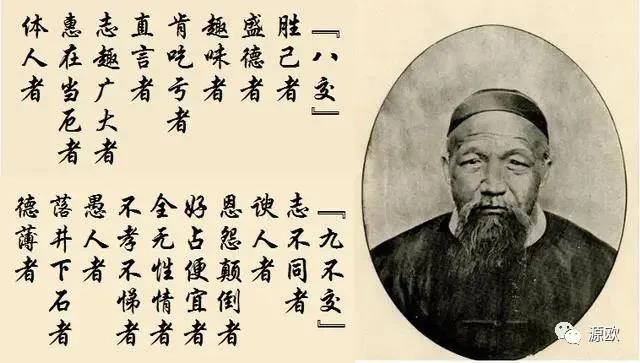 『八交』
胜己者
盛德者
趣味者
肯吃亏者
直言者
志趣广大者
惠在当厄者
体人者
『九不交』
志不同者
谀人者
恩怨颠倒者
好占便宜者
全无性情者
不孝不悌者
愚人者
落井下石者
德薄者
源欧